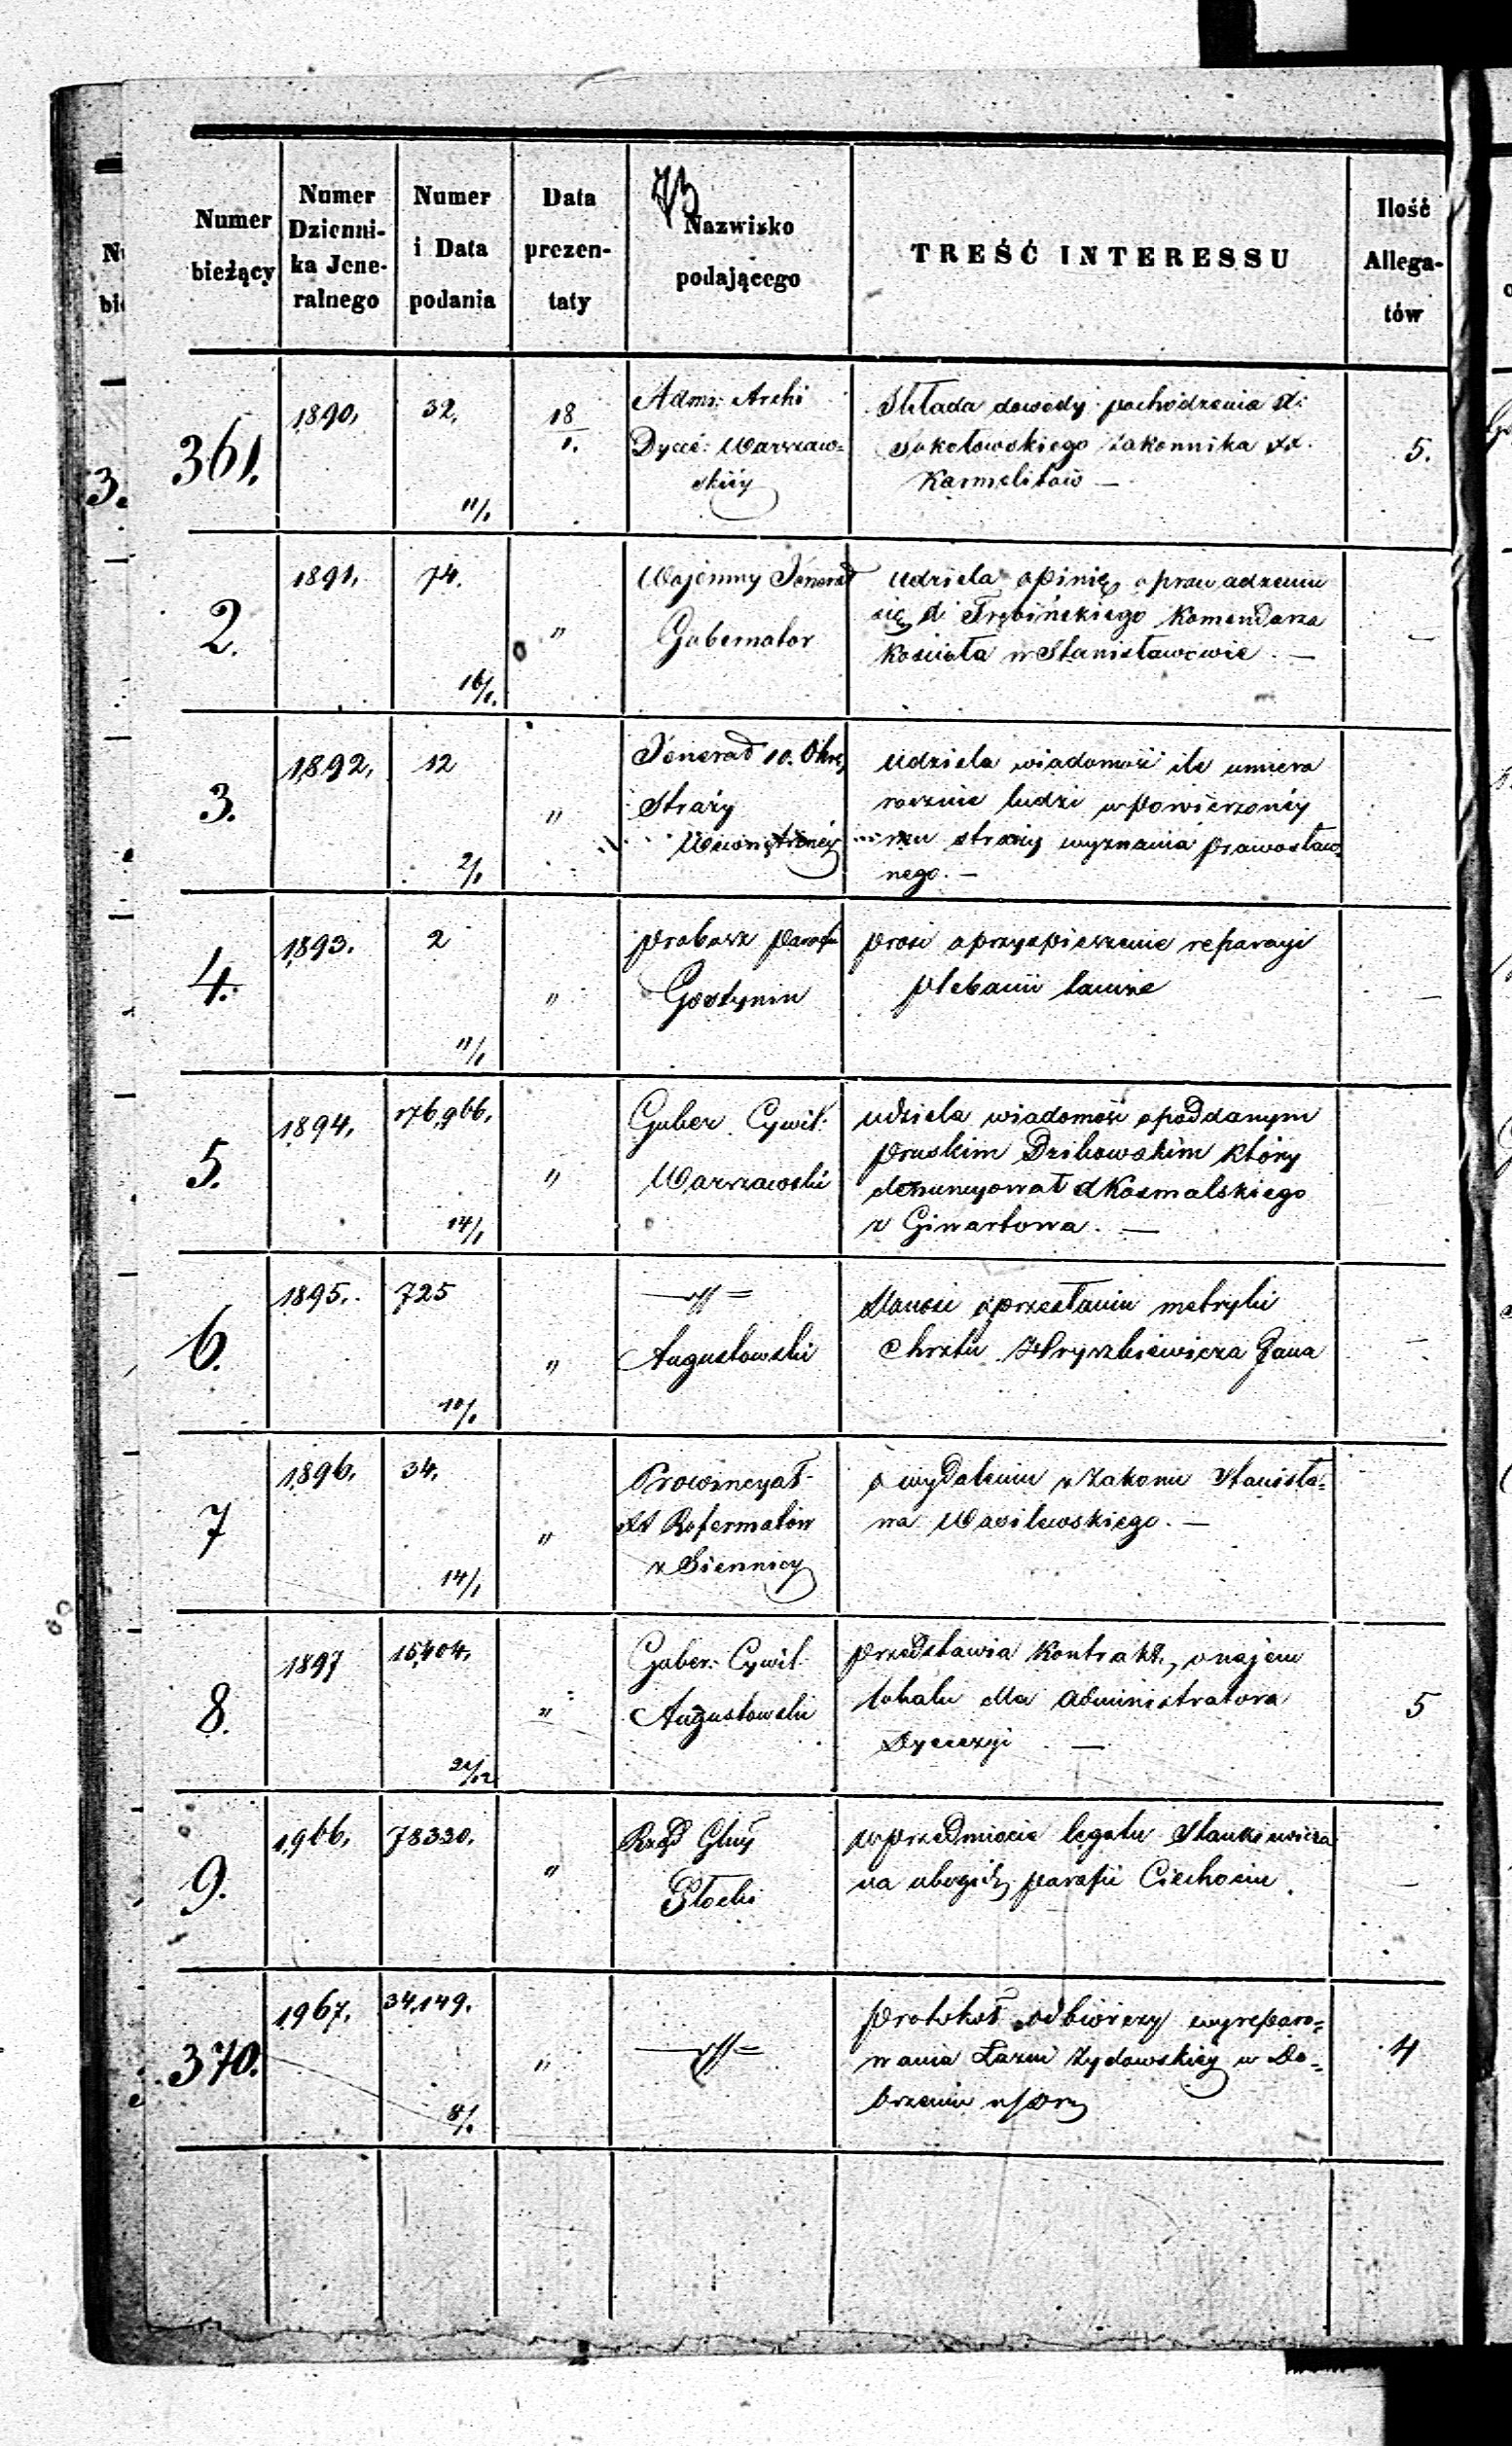 73
Numer bieżący
Numer Dzienni-ka Jene-ralnego
Numer i Data podania
Data prezen-taty
Nazwisko podającego
TREŚĆ INTERESSU
Ilość Allega-tów
361.
1890,
32,
11/1
18/1.
Adm: Archi
Dyece: Warszaw=
skiéj
Składa dowody pochodzenia X:
Sokołowskiego Zakonnika XX.
Karmelitów —
5.
2.
1891,
74.
16/1.
"
Wojenny Jenerał
Gubernator
Udziela opinię o prowadzeniu
się X Trębińskiego Komendarza
Kościoła w Stanisławowie. —
—
3.
1892,
12
2/1
"
Jenerał 10. Okrę
Straży
Wewnętrznéj
Udziela wiadomość ile umiera
rocznie ludzi w powierzonéj
mu straży wyznania prawosław=
nego. —
4.
1893.
2
11/1
"
Probosz Parafii
Gostynin
Prosi o przyspieszenie reparacyi
plebanii tamże
—
5.
1894,
176,966,
14/1
"
Guber Cywil:
Warszawski
Udziela wiadomość o poddanym
Pruskim Dzikowskim który
denuncyował X Kosmalskiego
z Giwartowa. —
6.
1895.
725
10/1
"
—"=
Augustowski
Donosi o przesłaniu metryki
Chrztu Jana
—
7
1896,
34,
14/1
"
Prowincyał
XX Reformatów
z Siennicy
o wydaleniu z Zakonu Stanisła=
wa Wasilewskiego. —
8.
1897
15,404,
21/12
"
Guber: Cywil:
Augustowski
Przedstawia Kontrakt, o najem
lokalu dla Administratora
Dyecezyi —
5
9.
1966,
78330,
"
Rząd Gbny
Płocki
w przedmiocie legatu Stankiewicza
na ubogich parafii Ciechocin.
—
370.
1967,
34,149,
8/1.
"
—"=
Protokół odbiorczy wyreparo=
wania Łazni Żydowskiéj w Do=
brzeniu n/Drw
4